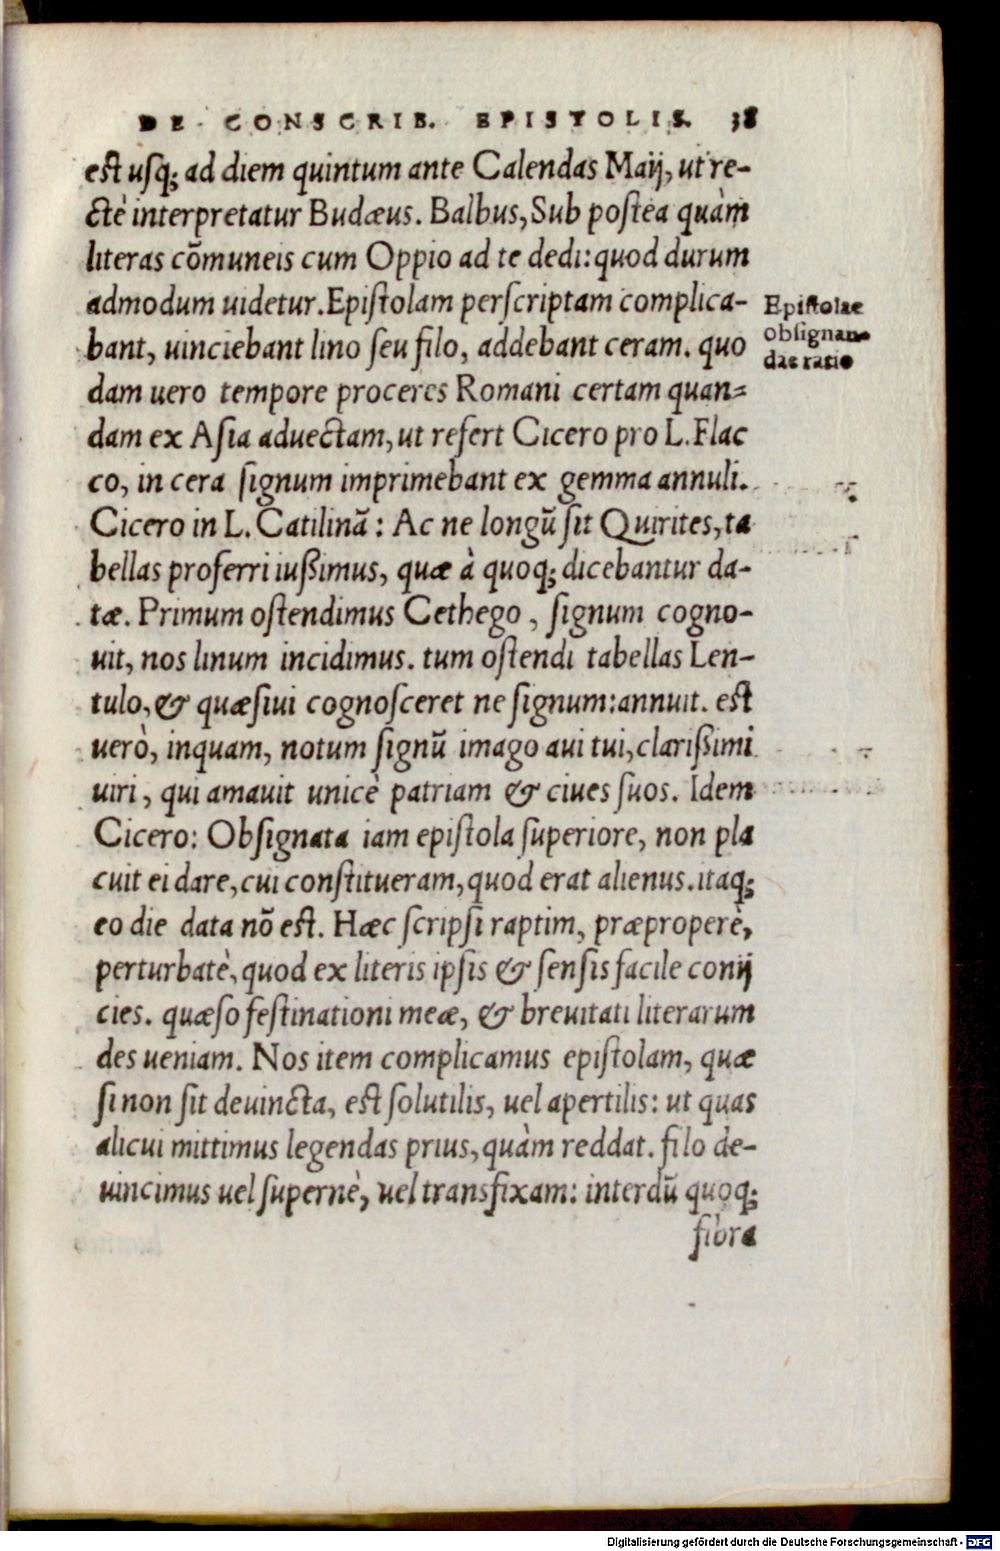 DE CONSCRIB. EPISTOLIS. 38
est usq; ad diem quintum ante Calendas Maij, ut re-
ctè interpretatur Budæus. Balbus, Sub postea quàm
literas cōmuneis cum Oppio ad te dedi: quod durum
admodum uidetur. Epistolam perscriptam complica-
bant, uinciebant lino seu filo, addebant ceram. quo
dam uero tempore proceres Romani certam quan-
dam ex Asia aduectam, ut refert Cicero pro L. Flac
co, in cera signum imprimebant ex gemma annuli.
Cicero in L. Catilinā: Ac ne longū sit Quirites, ta
bellas proferri iußimus, quæ à quoq; dicebantur da-
tæ. Primum ostendimus Cethego, signum cogno-
uit, nos linum incidimus. tum ostendi tabellas Len-
tulo, & quæsiui cognosceret ne signum: annuit. est
uerò, inquam, notum signū imago aui tui, clarißimi
uiri, qui amauit unicè patriam & ciues suos. Idem
Cicero: Obsignata iam epistola superiore, non pla
cuit ei dare, cui constitueram, quod erat alienus. itaq;
eo die data nō est. Hæc scripsi raptim, præproperè,
perturbatè, quod ex literis ipsis & sensis facile conij
cies. quæso festinationi meæ, & breuitati literarum
des ueniam. Nos item complicamus epistolam, quæ
si non sit deuincta, est solutilis, uel apertilis: ut quas
alicui mittimus legendas prius, quàm reddat. filo de-
uincimus uel supernè, uel transfixam: interdū quoq;
fibra
Epistolae
obsignan-
dae ratio
Digitalisierung gefördert durch die Deutsche Forschungsgemeinschaft - DFG